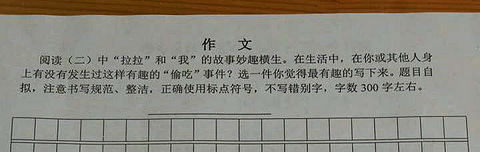 作 文
阅读（二）中“拉拉”和“我”的故事妙趣横生。在生活中，在你或其他人身
上有没有发生过这样有趣的“偷吃”事件？选一件你觉得最有趣的写下来。题目自
拟，注意书写规范、整洁，正确使用标点符号，不写错别字，字数 300 字左右。